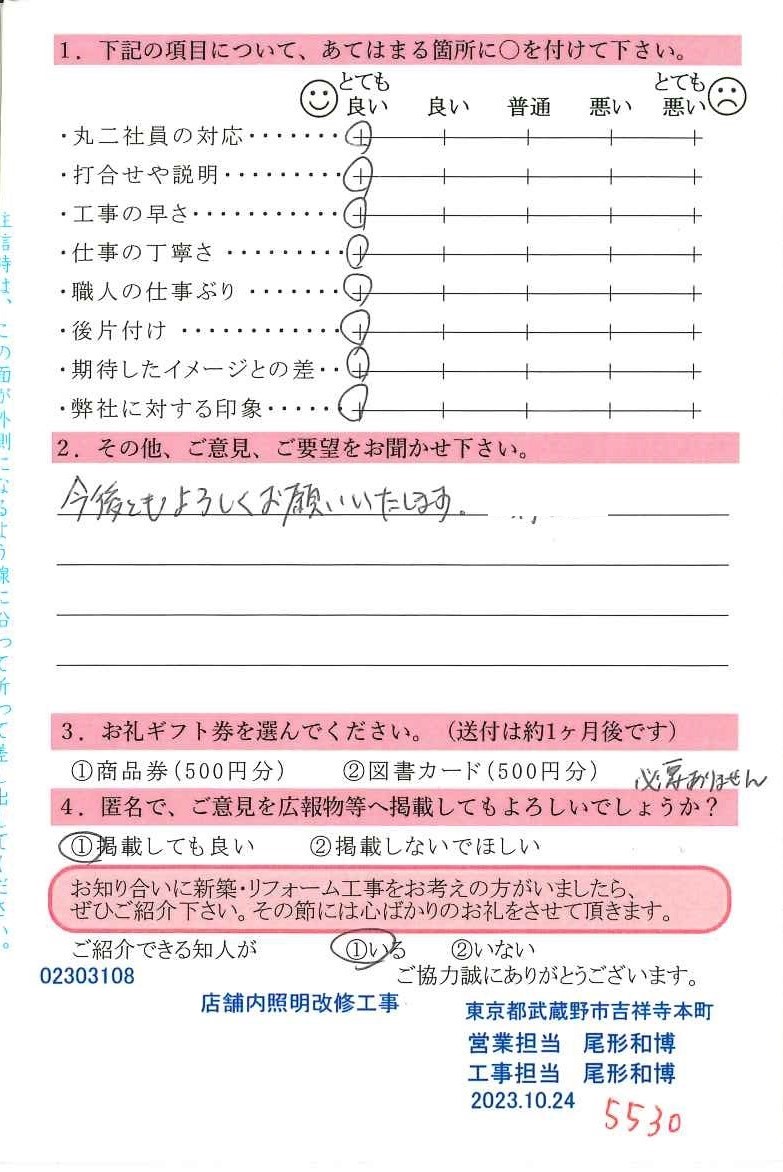 1．下記の項目について、あてはまる箇所に○を付けて下さい。
とても良い 良い 普通 悪い とても悪い
・丸二社員の対応・・・・・・・
・打合せや説明・・・・・・・・・
・工事の早さ・・・・・・・・・・・
・仕事の丁寧さ・・・・・・・・・
・職人の仕事ぶり・・・・・・・
・後片付け・・・・・・・・・・・・
・期待したイメージとの差・・
・弊社に対する印象・・・・・・
2．その他、ご意見、ご要望をお聞かせ下さい。
今後ともよろしくお願いいたします。
3．お礼ギフト券を選んでください。（送付は約1ヶ月後です）
①商品券（500円分） ②図書カード（500円分） 必要ありません
4．匿名で、ご意見を広報物等へ掲載してもよろしいでしょうか？
①掲載しても良い ②掲載しないでほしい
お知り合いに新築・リフォーム工事をお考えの方がいましたら、
ぜひご紹介下さい。その節には心ばかりのお礼をさせて頂きます。
ご紹介できる知人が ①いる ②いない
ご協力誠にありがとうございます。
02303108
店舗内照明改修工事
東京都武蔵野市吉祥寺本町
営業担当 尾形和博
工事担当 尾形和博
2023.10.24
5530